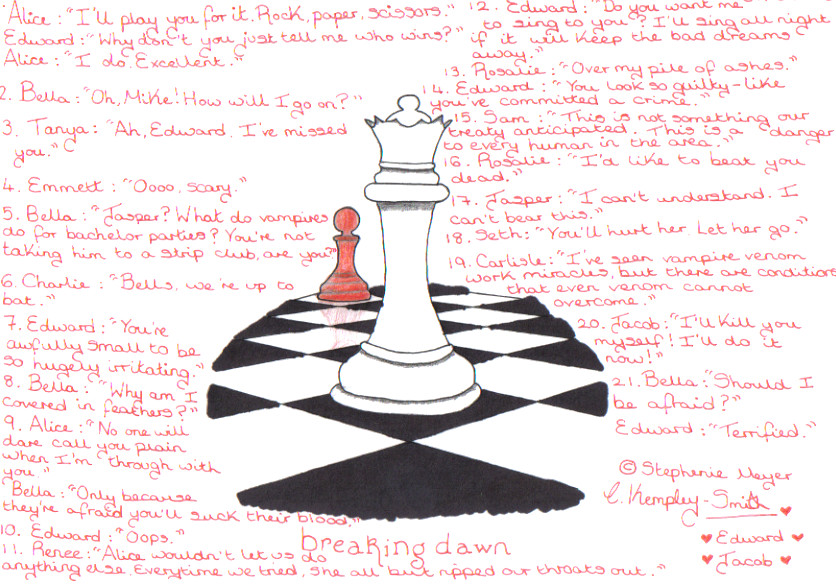 Alice: "I'll play you for it. Rock, paper, scissors."
Edward: "Why don't you just tell me who wins?"
Alice: "I do. Excellent."
2. Bella: "Oh, Mike! How will I go on?"
3. Tanya: "Ah, Edward. I've missed
you."
4. Emmett: "Oooo, scary."
5. Bella: "Jasper? What do vampires
do for bachelor parties? You're not
taking him to a strip club, are you?"
6. Charlie: "Bells, we're up to
bat."
7. Edward: "You're
awfully small to be
so hugely irritating."
8. Bella: "Why am I
covered in feathers?"
9. Alice: "No one will
dare call you plain
when I'm through with
you."
Bella: "Only because
they're afraid you'll suck their blood."
10. Edward: "Oops."
11. Renee: "Alice wouldn't let us do
anything else. Everytime we tried, she all but ripped our throats out."
12. Edward: "Do you want me
to sing to you? I'll sing all night
if it will keep the bad dreams
away."
13. Rosalie: "Over my pile of ashes."
14. Edward: "You look so guilty-like
you've committed a crime."
15. Sam: "This is not something our
treaty anticipated. This is a danger
to every human in the area."
16. Rosalie: "I'd like to beat you
dead."
17. Jasper: "I can't understand. I
can't bear this."
18. Seth: "You'll hurt her. Let her go."
19. Carlisle: "I've seen vampire venom
work miracles, but there are conditions
that even venom cannot
overcome."
20. Jacob: "I'll kill you
myself! I'll do it
now!"
21. Bella: "Should I
be afraid?"
Edward: "Terrified."
© Stephenie Meyer
C. Kempley-Smith
Edward
Jacob
breaking dawn